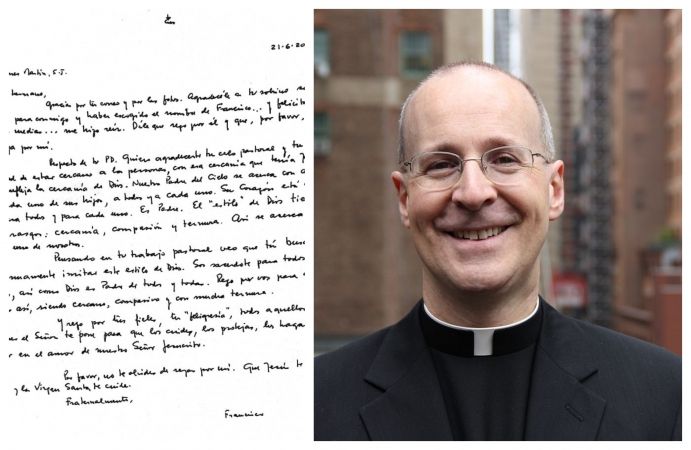 21-6-20
Martín, S.J.
hermano,
Gracias por tu correo y por las fotos. Agradécele a tu sobrino
para conmigo y haber escogido el nombre de Francisco... y
medias... me hizo reír. Dile que rezo por él y que, por favor,
por mí.
Respecto de tu P.D. Quiero agradecerte tu celo pastoral y tu
de estar cercano a las personas, con esa cercanía que tenía
la cercanía de Dios. Nuestro Padre del Cielo se acerca con
uno de sus hijos, a todos y a cada uno. Su Corazón está
todos y para cada uno. Es Padre. El "estilo" de Dios
rasgos: cercanía, compasión y ternura. Así se acerca
uno de nosotros.
Pensando en tu trabajo pastoral veo que tú
imitar este estilo de Dios. Sos sacerdote para todos
, así como Dios es Padre de todos y todas. Rezo por vos para
así, siendo cercano, compasivo y con mucha ternura.
Y rezo por tus fieles, tu "feligresía", todos aquellos
el Señor te pone para que los cuides, los protejas, los hagas
en el amor de nuestro Señor Jesucristo.
Por favor, no te olvides de rezar por mí. Que Jesús te
y la Virgen Santa te cuide.
Fraternalmente,
Francisco